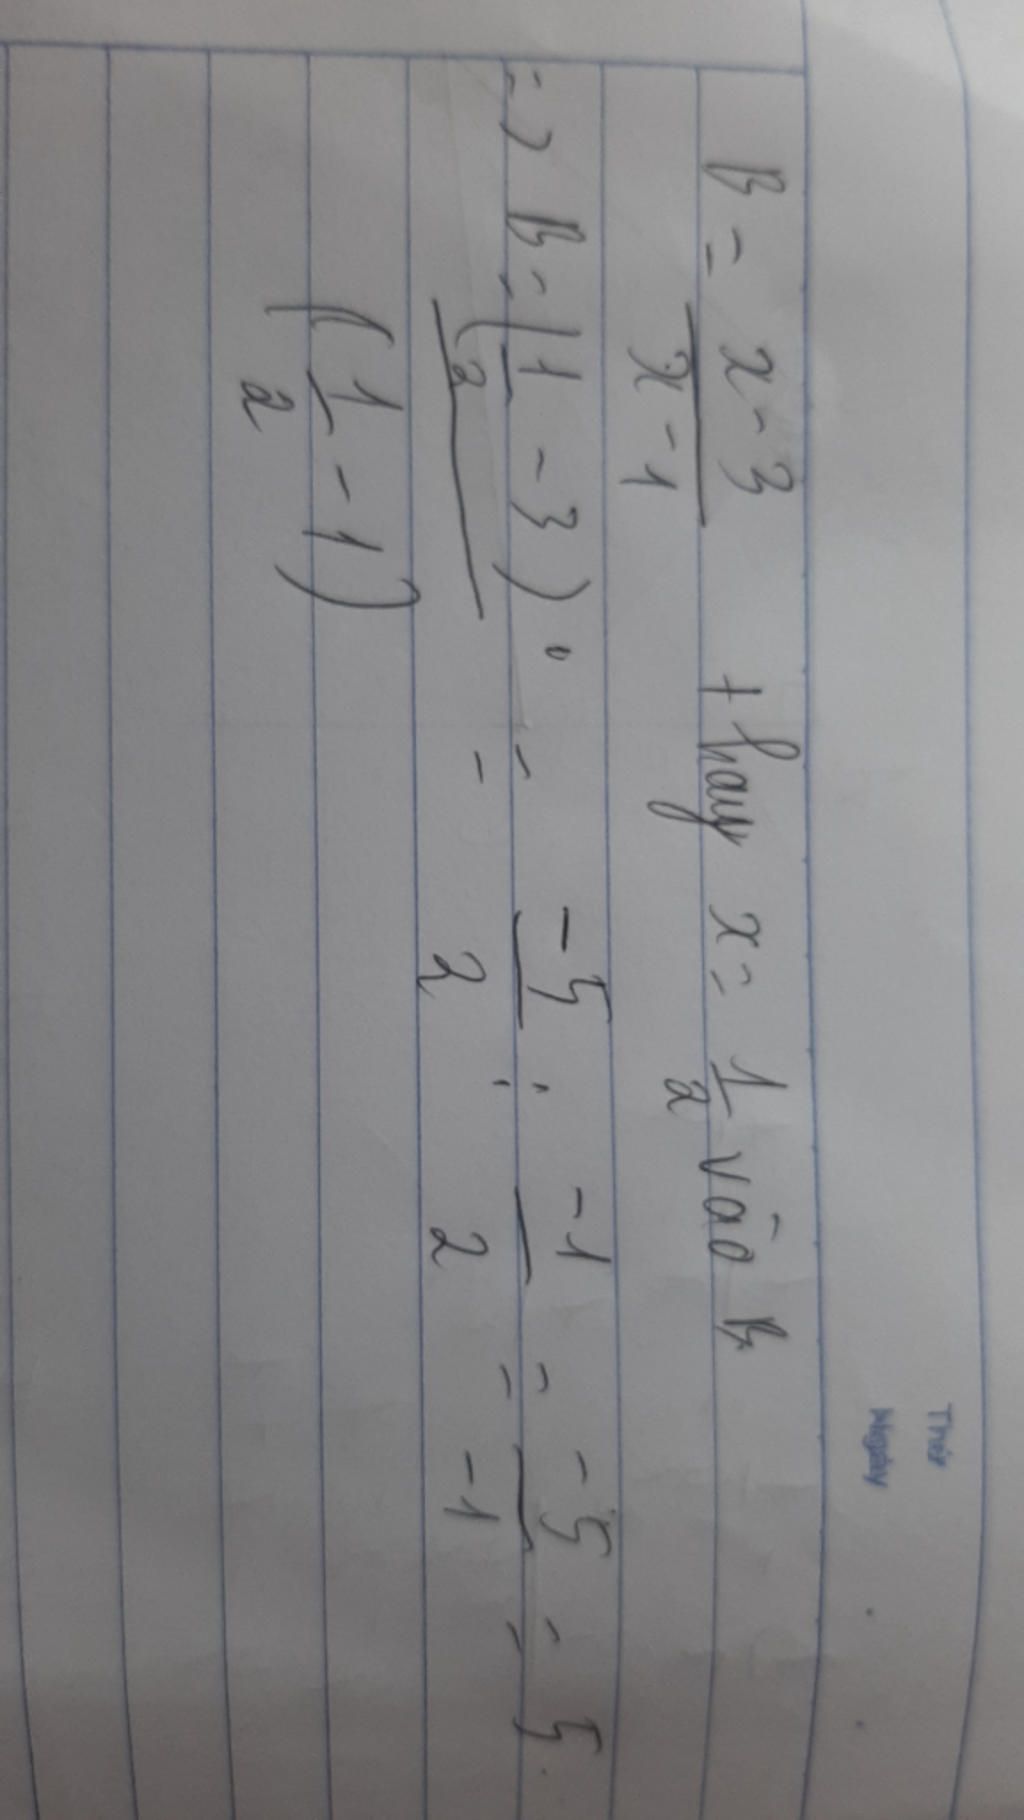 Thứ
Ngày
B = x - 3 / x - 1 + hay x = 1/2 vào B
=> B = (1/2 - 3) / (1/2 - 1) = -5/2 : -1/2 = -5/-1 = 5